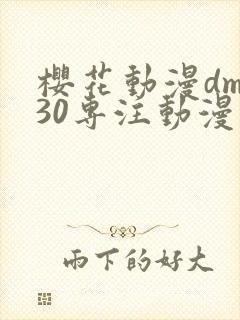 櫻花動漫dm
30專注動漫
雨下的好大